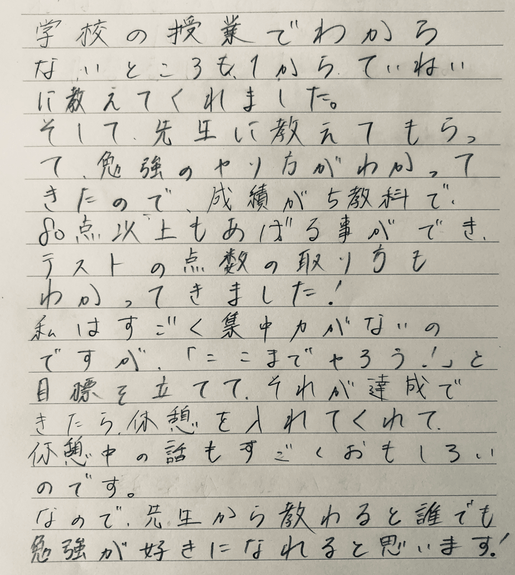 学校の授業でわから
ないところも、1から、ていねい
に教えてくれました。
そして、先生に教えてもらっ
て、勉強のやり方がわかって
きたので、成績が5教科で、
80点以上もあげる事ができ、
テストの点数の取り方も
わかってきました!
私はすごく集中力がないの
ですが、「ここまでやろう!」と
目標を立てて、それが達成で
きたら、休憩を入れてくれて、
休憩中の話もすごくおもしろい
のです。
なので、先生から教わると誰でも
勉強が好きになれると思います!